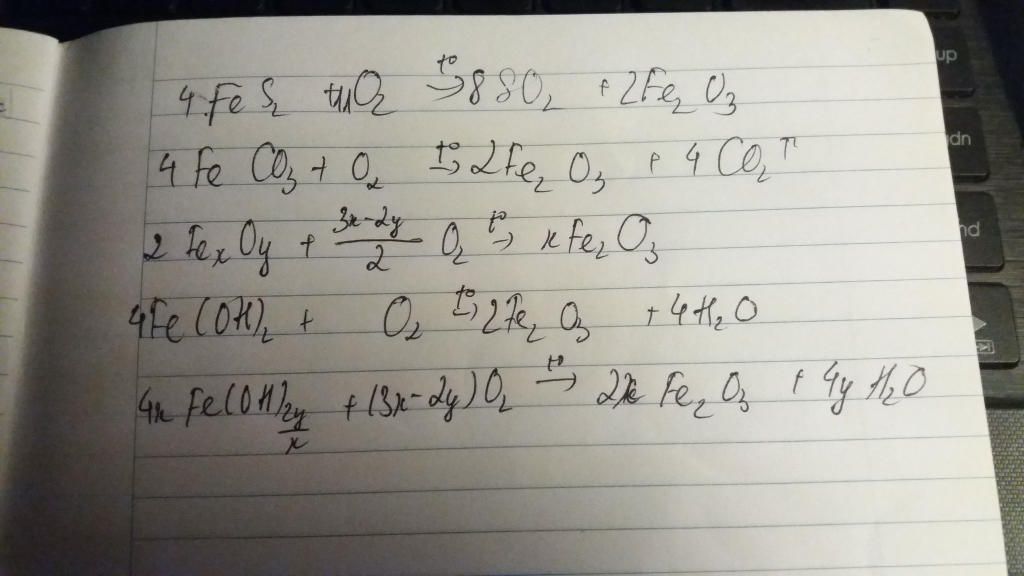 4FeS₂ + 11O₂ →t° 8SO₂ + 2Fe₂O₃
4FeCO₃ + O₂ →t° 2Fe₂O₃ + 4CO₂↑
2FeₓOy + (3x-2y)/2 O₂ →t° xFe₂O₃
4Fe(OH)₂ + O₂ →t° 2Fe₂O₃ + 4H₂O
4x Fe(OH)_(2y/x) + (3x-2y)O₂ →t° 2x Fe₂O₃ + 4y H₂O
up
dn
nd